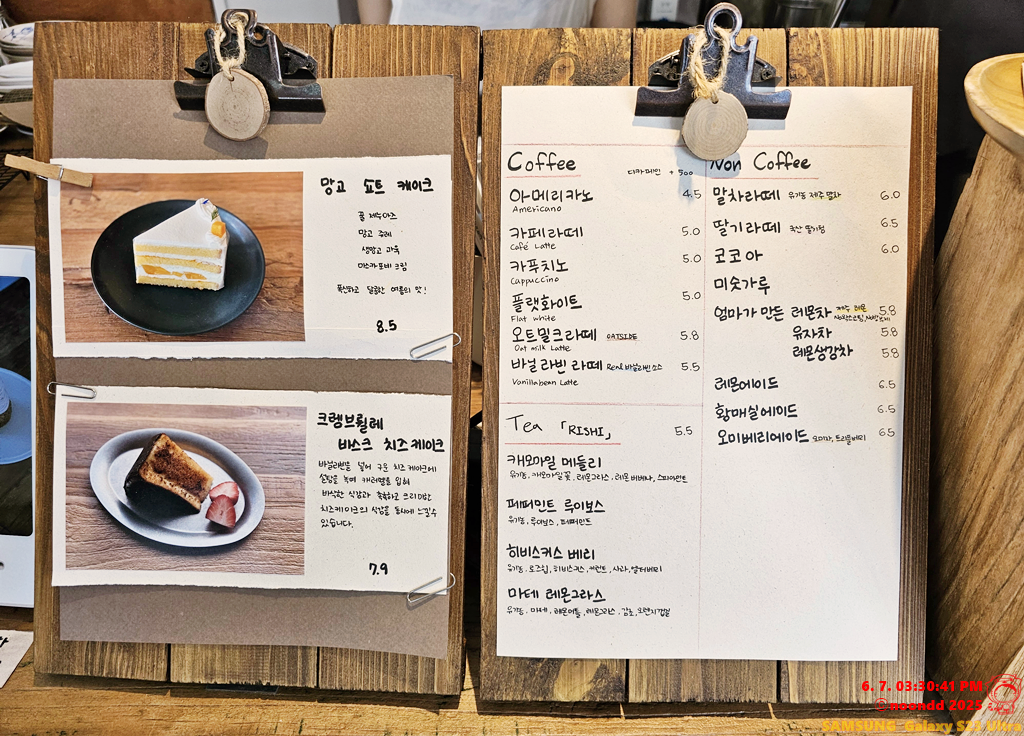 망고 쇼트 케이크
골 제누아즈
망고 쥬레
생망고 과육
마스카포네 크림
폭신하고 달콤한 여름의 맛!
8.5
크렘브륄레
바스크 치즈케이크
바닐라빈을 넣어 구운 치즈케이크에
설탕을 녹여 캐러멜을 입혀
바삭한 식감과 촉촉하고 크리미한
치즈케이크의 식감을 동시에 느낄수
있습니다.
7.9
Coffee
디카페인 + 500
아메리카노 4.5
Americano
카페라떼 5.0
Café Latte
카푸치노 5.0
Cappuccino
플랫화이트 5.0
Flat white
오트밀크라떼 OATSIDE 5.8
Oat milk Latte
바닐라빈 라떼 Real 바닐라빈소스 5.5
Vanillabean Latte
Tea 「RISHI」 5.5
캐모마일 메들리
유기농, 캐모마일꽃, 레몬그라스, 레몬 버베나, 스피아민트
페퍼민트 루이보스
유기농, 루이보스, 페퍼민트
히비스커스 베리
유기농, 로즈힙, 히비스커스, 커런트, 사과, 엘더베리
마테 레몬그라스
유기농, 마테, 레몬머틀, 레몬그라스, 감초, 오렌지껍질
Non Coffee
말차라떼 유기농 제주 말차 6.0
딸기라떼 국산 딸기청 6.5
코코아 6.0
미숫가루
엄마가 만든 레몬차 제주 레몬 5.8
유자차 5.8
레몬생강차 5.8
레몬에이드 6.5
황매실에이드 6.5
오미베리에이드 오미자, 트리플베리 6.5
6. 7. 03:30:41 PM
noondd 2025
SAMSUNG Galaxy S23 Ultra